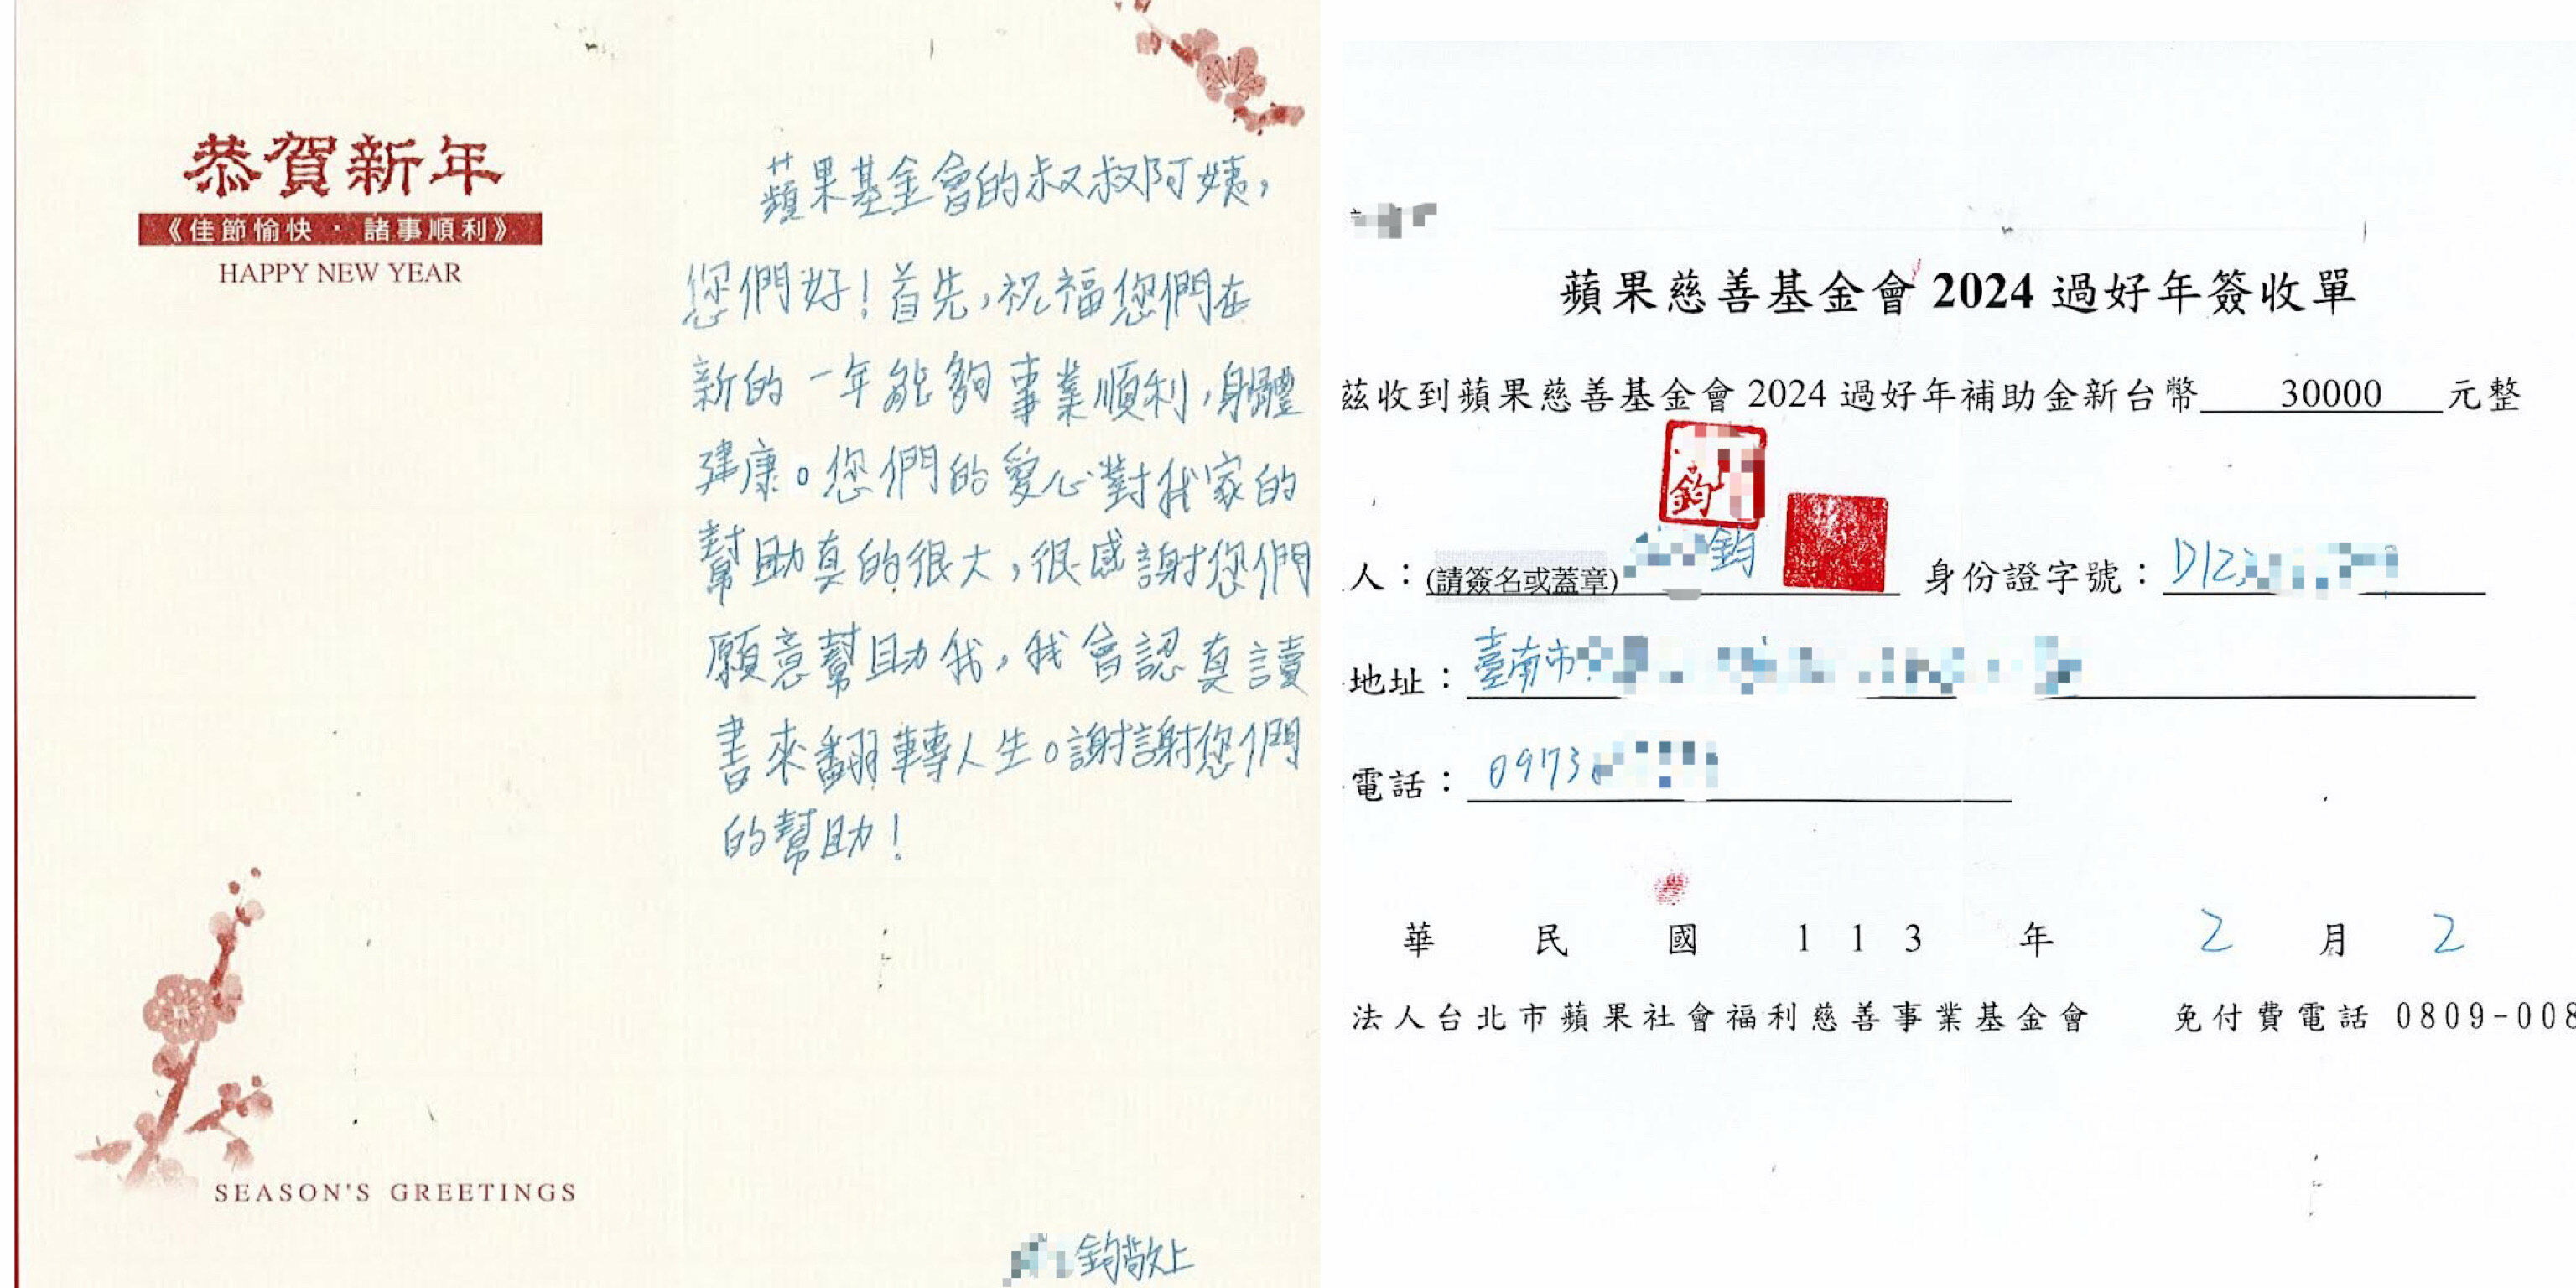 恭賀新年
《佳節愉快 · 諸事順利》
HAPPY NEW YEAR
蘋果基金會的叔叔阿姨，
您們好！首先，祝福您們在
新的一年能夠事業順利，身體
建康。您們的愛心對我家的
幫助真的很大，很感謝您們
願意幫助我，我會認真讀
書來翻轉人生。謝謝您們
的幫助！
SEASON'S GREETINGS
鈞敬上
蘋果慈善基金會 2024 過好年簽收單
茲收到蘋果慈善基金會 2024 過好年補助金新台幣 30000 元整
鈞
人：(請簽名或蓋章) 鈞 身份證字號：D12
地址：臺南市
電話：0973
華 民 國 1 1 3 年 2 月 2
法人台北市蘋果社會福利慈善事業基金會 免付費電話 0809-008